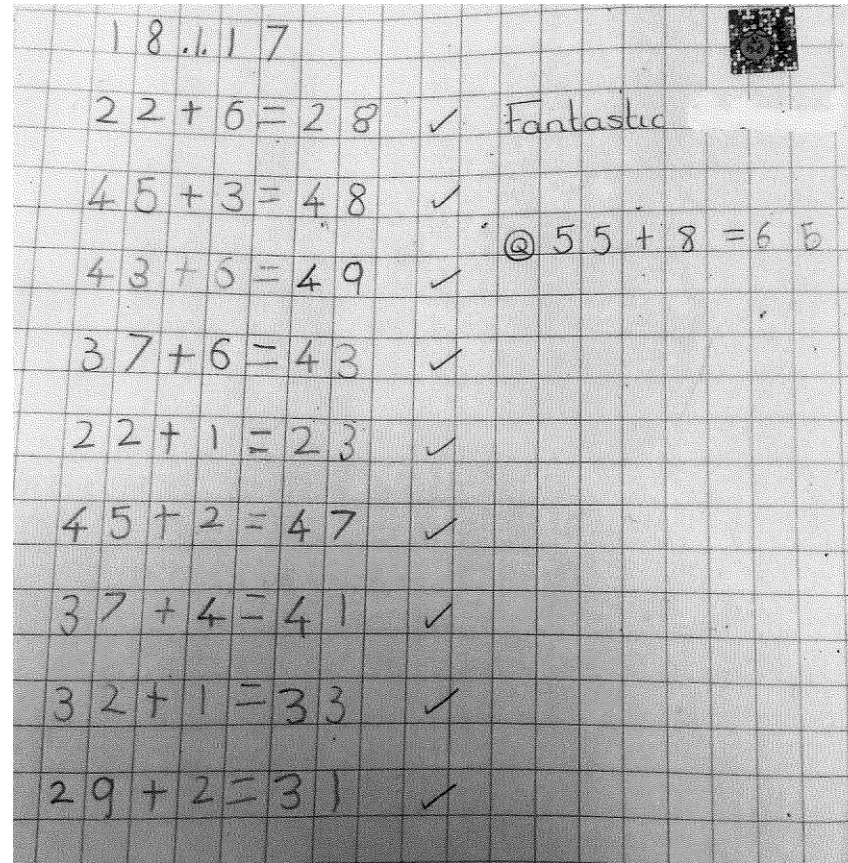 18.1.17
22+6=28 ✓ Fantastic
45+3=48 ✓
@ 55+8=65
43+6=49 ✓
37+6=43 ✓
22+1=23 ✓
45+2=47 ✓
37+4=41 ✓
32+1=33 ✓
29+2=31 ✓